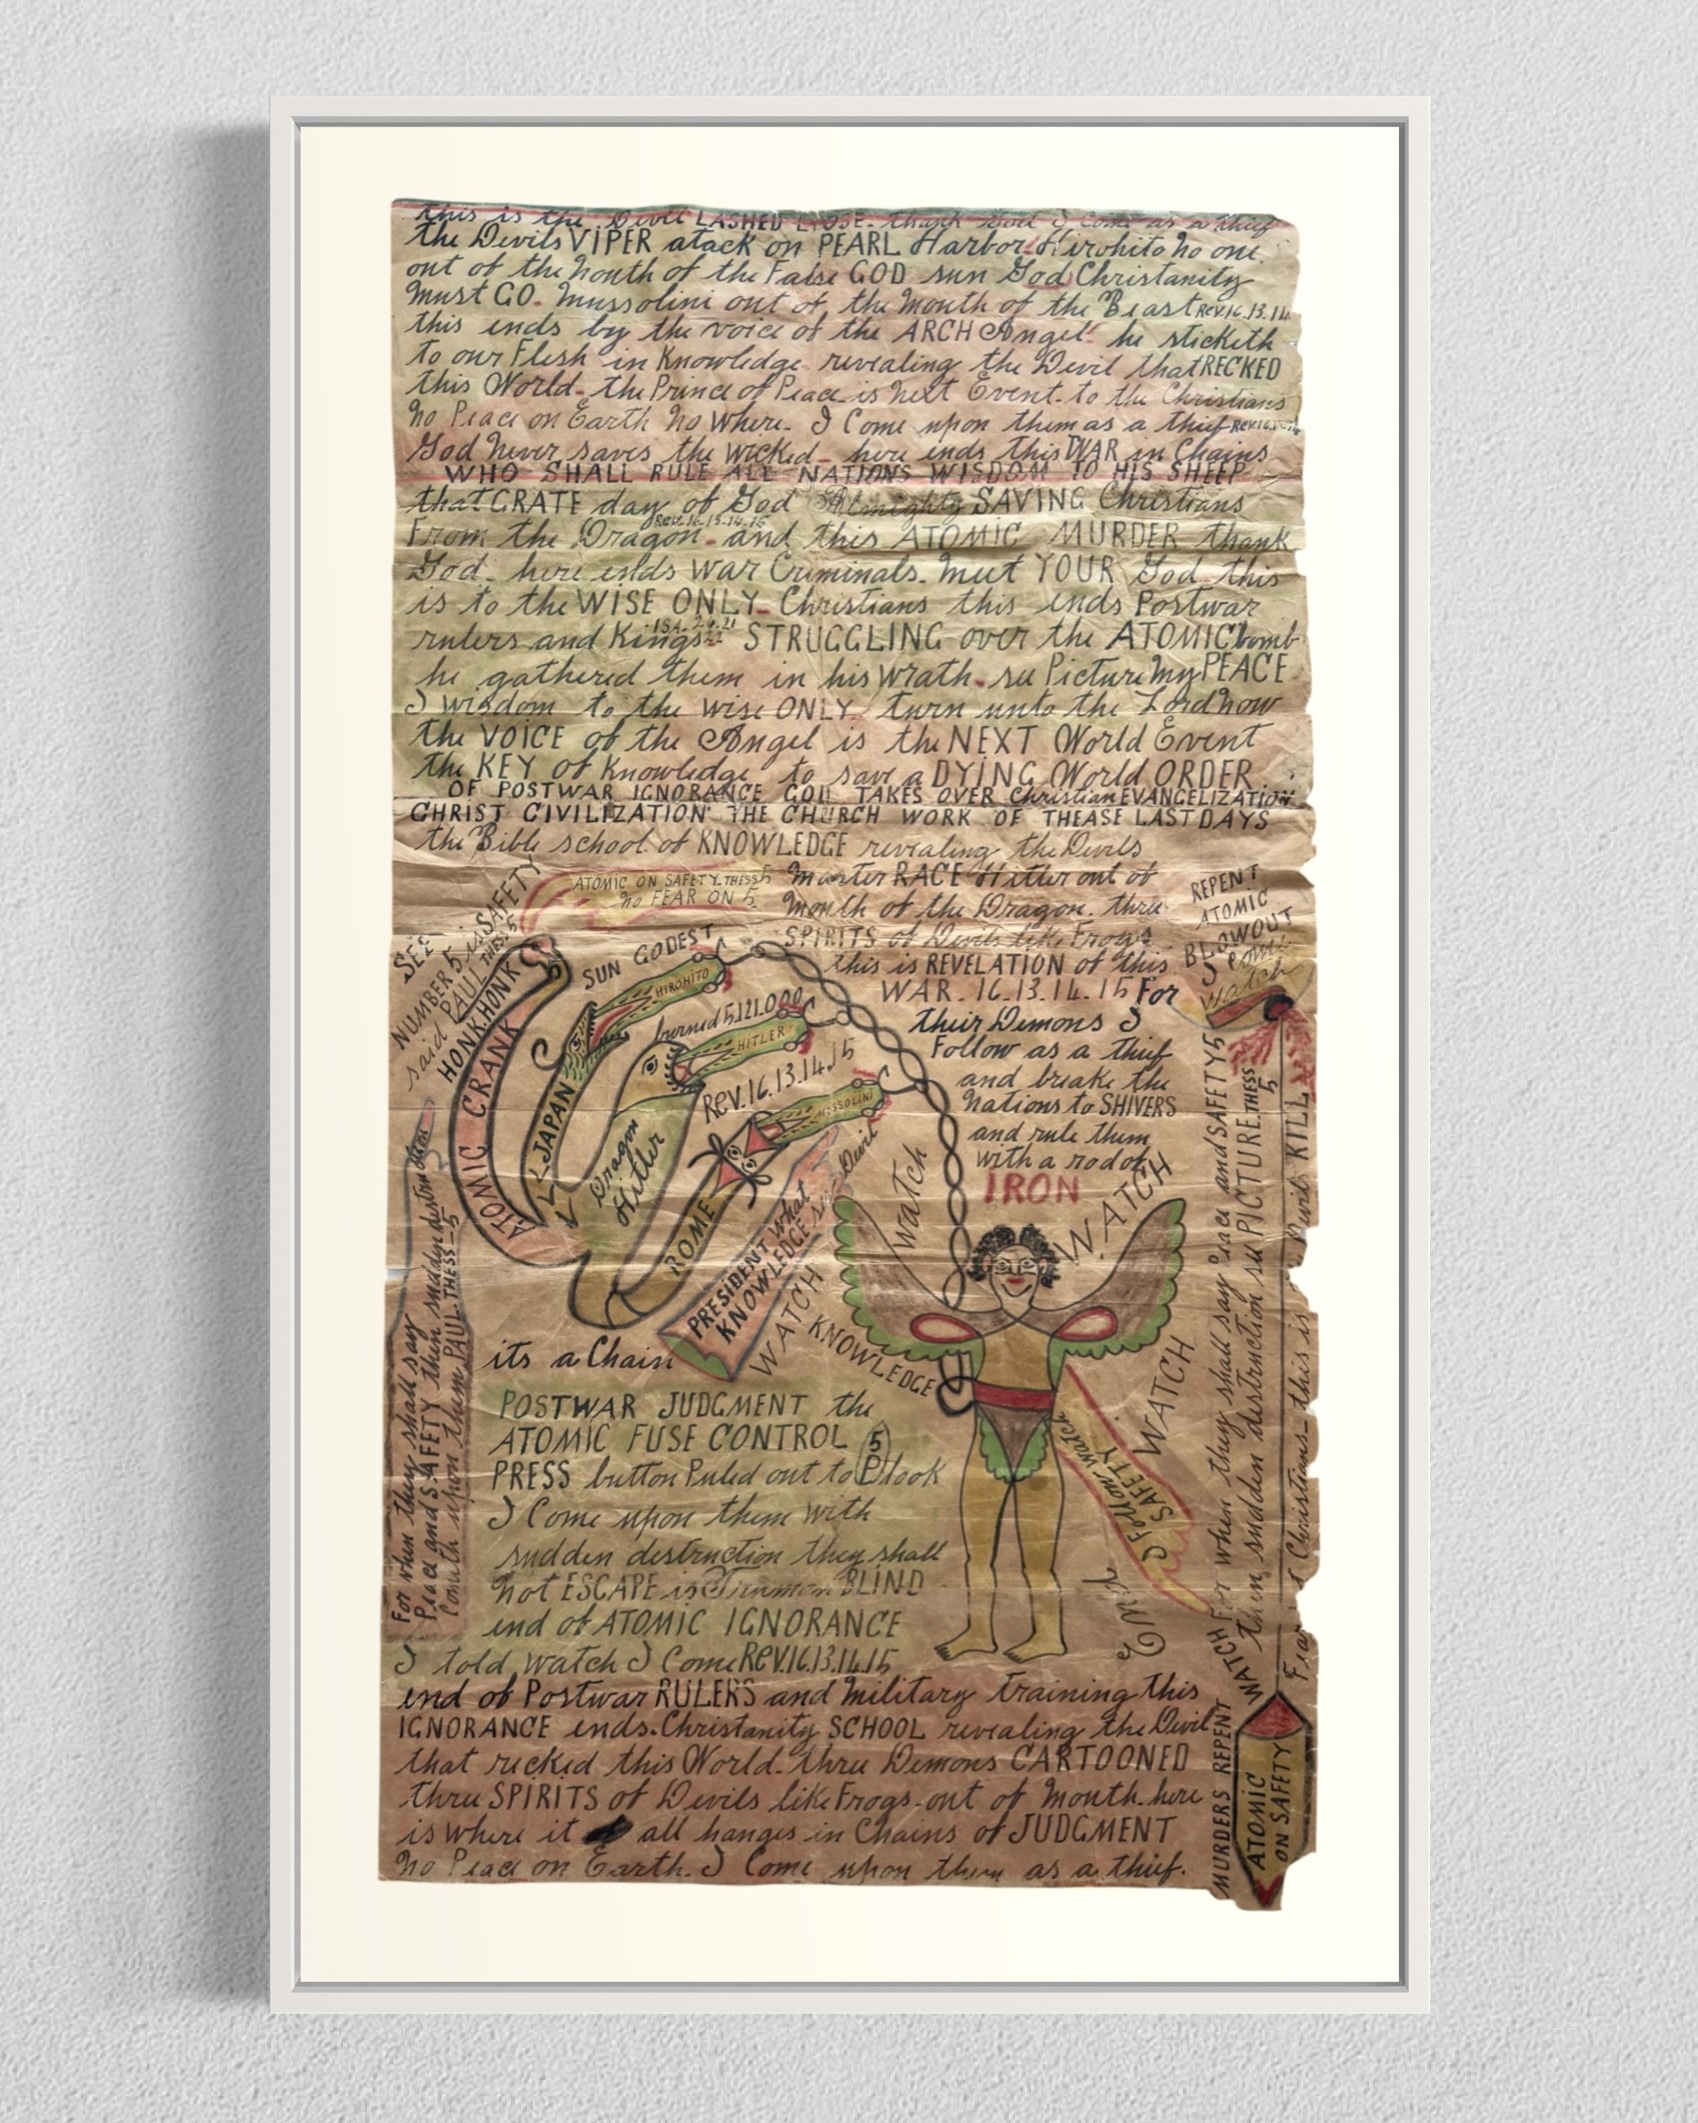 this is the Devil LASHED LOOSE. thank God I Come as a thief
the Devils VIPER atack on PEARL Harbor Hirohito no one.
out of the mouth of the False GOD sun God Christanity
must GO. Mussolini out of the Mouth of the Beast Rev.16.13.14.
this ends by the voice of the ARCH Angel he sticketh
to our Flesh in Knowledge revealing the Devil that RECKED
this World. the Prince of Peace is next Event. to the Christians
no Peace on Earth no where. I Come upon them as a thief
God never saves the wicked. here ends this WAR in Chains
WHO SHALL RULE ALL NATIONS WISDOM TO HIS SHEEP
that GRATE day of God Almighty SAVING Christians
Rev.16.13.14.15
From the Dragon. and this ATOMIC MURDER thank
God. here ends war Criminals. meet YOUR God this
is to the WISE ONLY. Christians this ends Postwar
ISA.24.21
rulers and Kings STRUGGLING over the ATOMIC bomb
he gathered them in his wrath. see Picture My PEACE
I wisdom to the wise ONLY turn unto the Lord now
the VOICE of the Angel is the NEXT World Event
the KEY of Knowledge to save a DYING World ORDER
OF POSTWAR IGNORANCE GOD TAKES OVER Christian EVANGELIZATION
CHRIST CIVILIZATION THE CHURCH WORK OF THEASE LAST DAYS
the Bible school of KNOWLEDGE revealing the Devils
Master RACE Hitler out of
Mouth of the Dragon. three
SPIRITS of Devils like Frogs.
this is REVELATION of this
WAR. 16.13.14.15 For
their Demons I
Follow as a thief
and breake the
nations to SHIVERS
and rule them
with a rod of
IRON
ATOMIC ON SAFETY THESS 5
no FEAR ON 5
SEE
NUMBER 5 is SAFETY
said PAUL THESS 5
HONK HONK
ATOMIC CRANK
SUN GODEST
HIROHITO
JAPAN
burned 5,121,000
HITLER
Dragon
Hitler
Rev.16.13.14.15
MUSSOLINI
ROME
PRESIDENT what
KNOWLEDGE
Devil
WATCH
KNOWLEDGE
watch
WATCH
WATCH
I Follow watch
SAFETY
REPENT
ATOMIC
BLOWOUT
I come
watch
For when they shall say
Peace and SAFETY then sudden destruction
Cometh upon them PAUL.THESS_5
its a Chain
POSTWAR JUDGMENT the
ATOMIC FUSE CONTROL 5
PRESS button Puled out to P look
I Come upon them with
sudden destruction they shall
not ESCAPE is BLIND
end of ATOMIC IGNORANCE
I told watch I Come Rev.16.13.14.15
end of Postwar RULERS and military training this
IGNORANCE ends. Christanity SCHOOL revealing the Devil
that recked this World. three Demons CARTOONED
three SPIRITS of Devils like Frogs. out of Mouth. here
is where it all hanges in Chains of JUDGMENT
no Peace on Earth. I Come upon them as a thief.
WATCH For when they shall say Peace and SAFETY 5
then sudden destruction see PICTURE THESS 5
Christians_ this is Devil KILL
MURDERS REPENT WATCH
ATOMIC
ON SAFETY